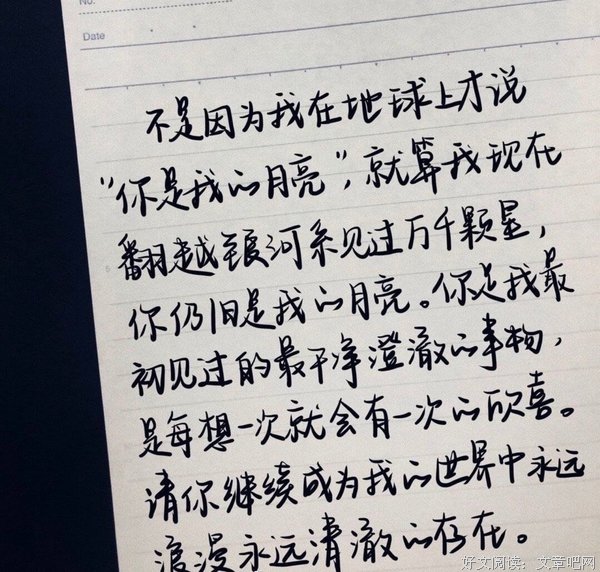 No.
Date
不是因为我在地球上才说
“你是我的月亮”，就算我现在
翻越银河系见过万千颗星，
你仍旧是我的月亮。你是我最
初见过的最干净澄澈的事物，
是每想一次就会有一次的欣喜。
请你继续成为我的世界中永远
浪漫永远清澈的存在。
好文阅读：文章吧网